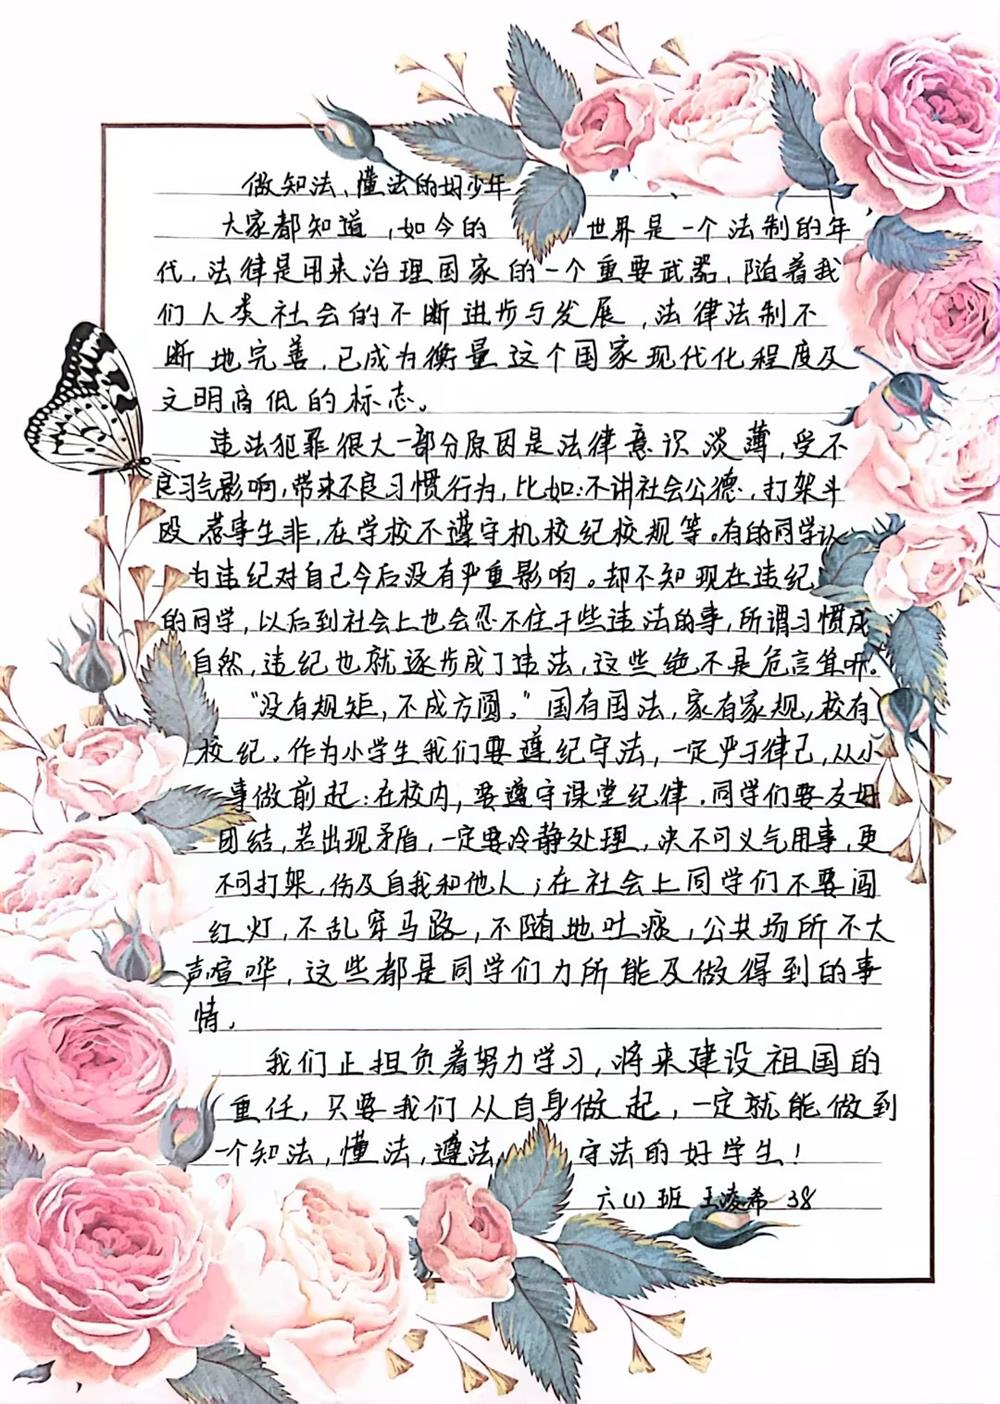 做知法、懂法的好少年
大家都知道,如今的世界是一个法制的年
代,法律是用来治理国家的一个重要武器,随着我
们人类社会的不断进步与发展,法律法制不
断地完善,已成为衡量这个国家现代化程度及
文明高低的标志。
违法犯罪很大一部分原因是法律意识淡薄,受不
良习气影响,带来不良习惯行为,比如:不讲社会公德,打架斗
殴,惹事生非,在学校不遵守机校纪校规等。有的同学认
为违纪对自己今后没有严重影响。却不知现在违纪
的同学,以后到社会上也会忍不住干些违法的事,所谓习惯成
自然,违纪也就逐步成了违法,这些绝不是危言耸听。
“没有规矩,不成方圆。”国有国法,家有家规,校有
校纪。作为小学生我们要遵纪守法,一定严于律己,从小
事做前起:在校内,要遵守课堂纪律.同学们要友好
团结,若出现矛盾,一定要冷静处理,决不可义气用事,更
不可打架,伤及自我和他人;在社会上同学们不要闯
红灯,不乱穿马路,不随地吐痰,公共场所不大
声喧哗,这些都是同学们力所能及做得到的事
情。
我们正担负着努力学习,将来建设祖国的
重任,只要我们从自身做起,一定就能做到
一个知法,懂法,遵法守法的好学生!
六(1)班 王凌希 38